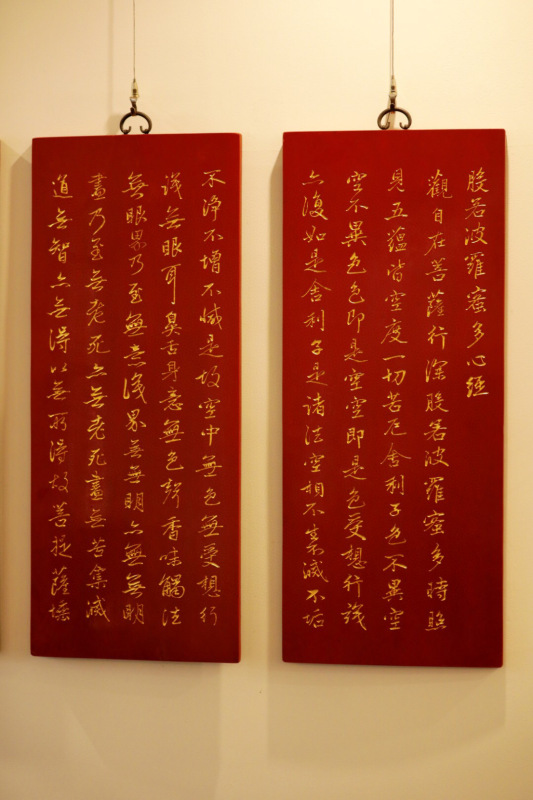 般若波羅蜜多心經
觀自在菩薩行深般若波羅蜜多時照
見五蘊皆空度一切苦厄舍利子色不異空
空不異色色即是空空即是色受想行識
亦復如是舍利子是諸法空相不生不滅不垢
不淨不增不減是故空中無色無受想行
識無眼耳鼻舌身意無色聲香味觸法
無眼界乃至無意識界無無明亦無無明
盡乃至無老死亦無老死盡無苦集滅
道無智亦無得以無所得故菩提薩埵